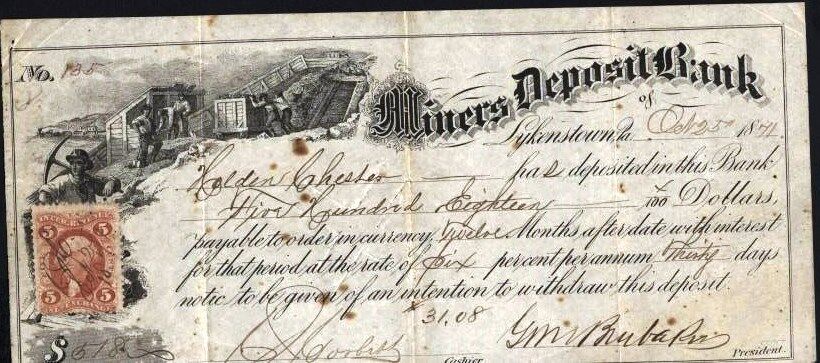 No. 135
Miners Deposit Bank
of
Lykenstown, Pa Oct 25 1871
Holden Chester has deposited in this Bank
Five Hundred Eighteen x/100 Dollars,
payable to order in currency, twelve Months after date with interest
for that period at the rate of six per cent per annum thirty days
notice to be given of an intention to withdraw this deposit.
INTER. REVENUE
5 5
5 5
31.08
$518
Cashier
President.